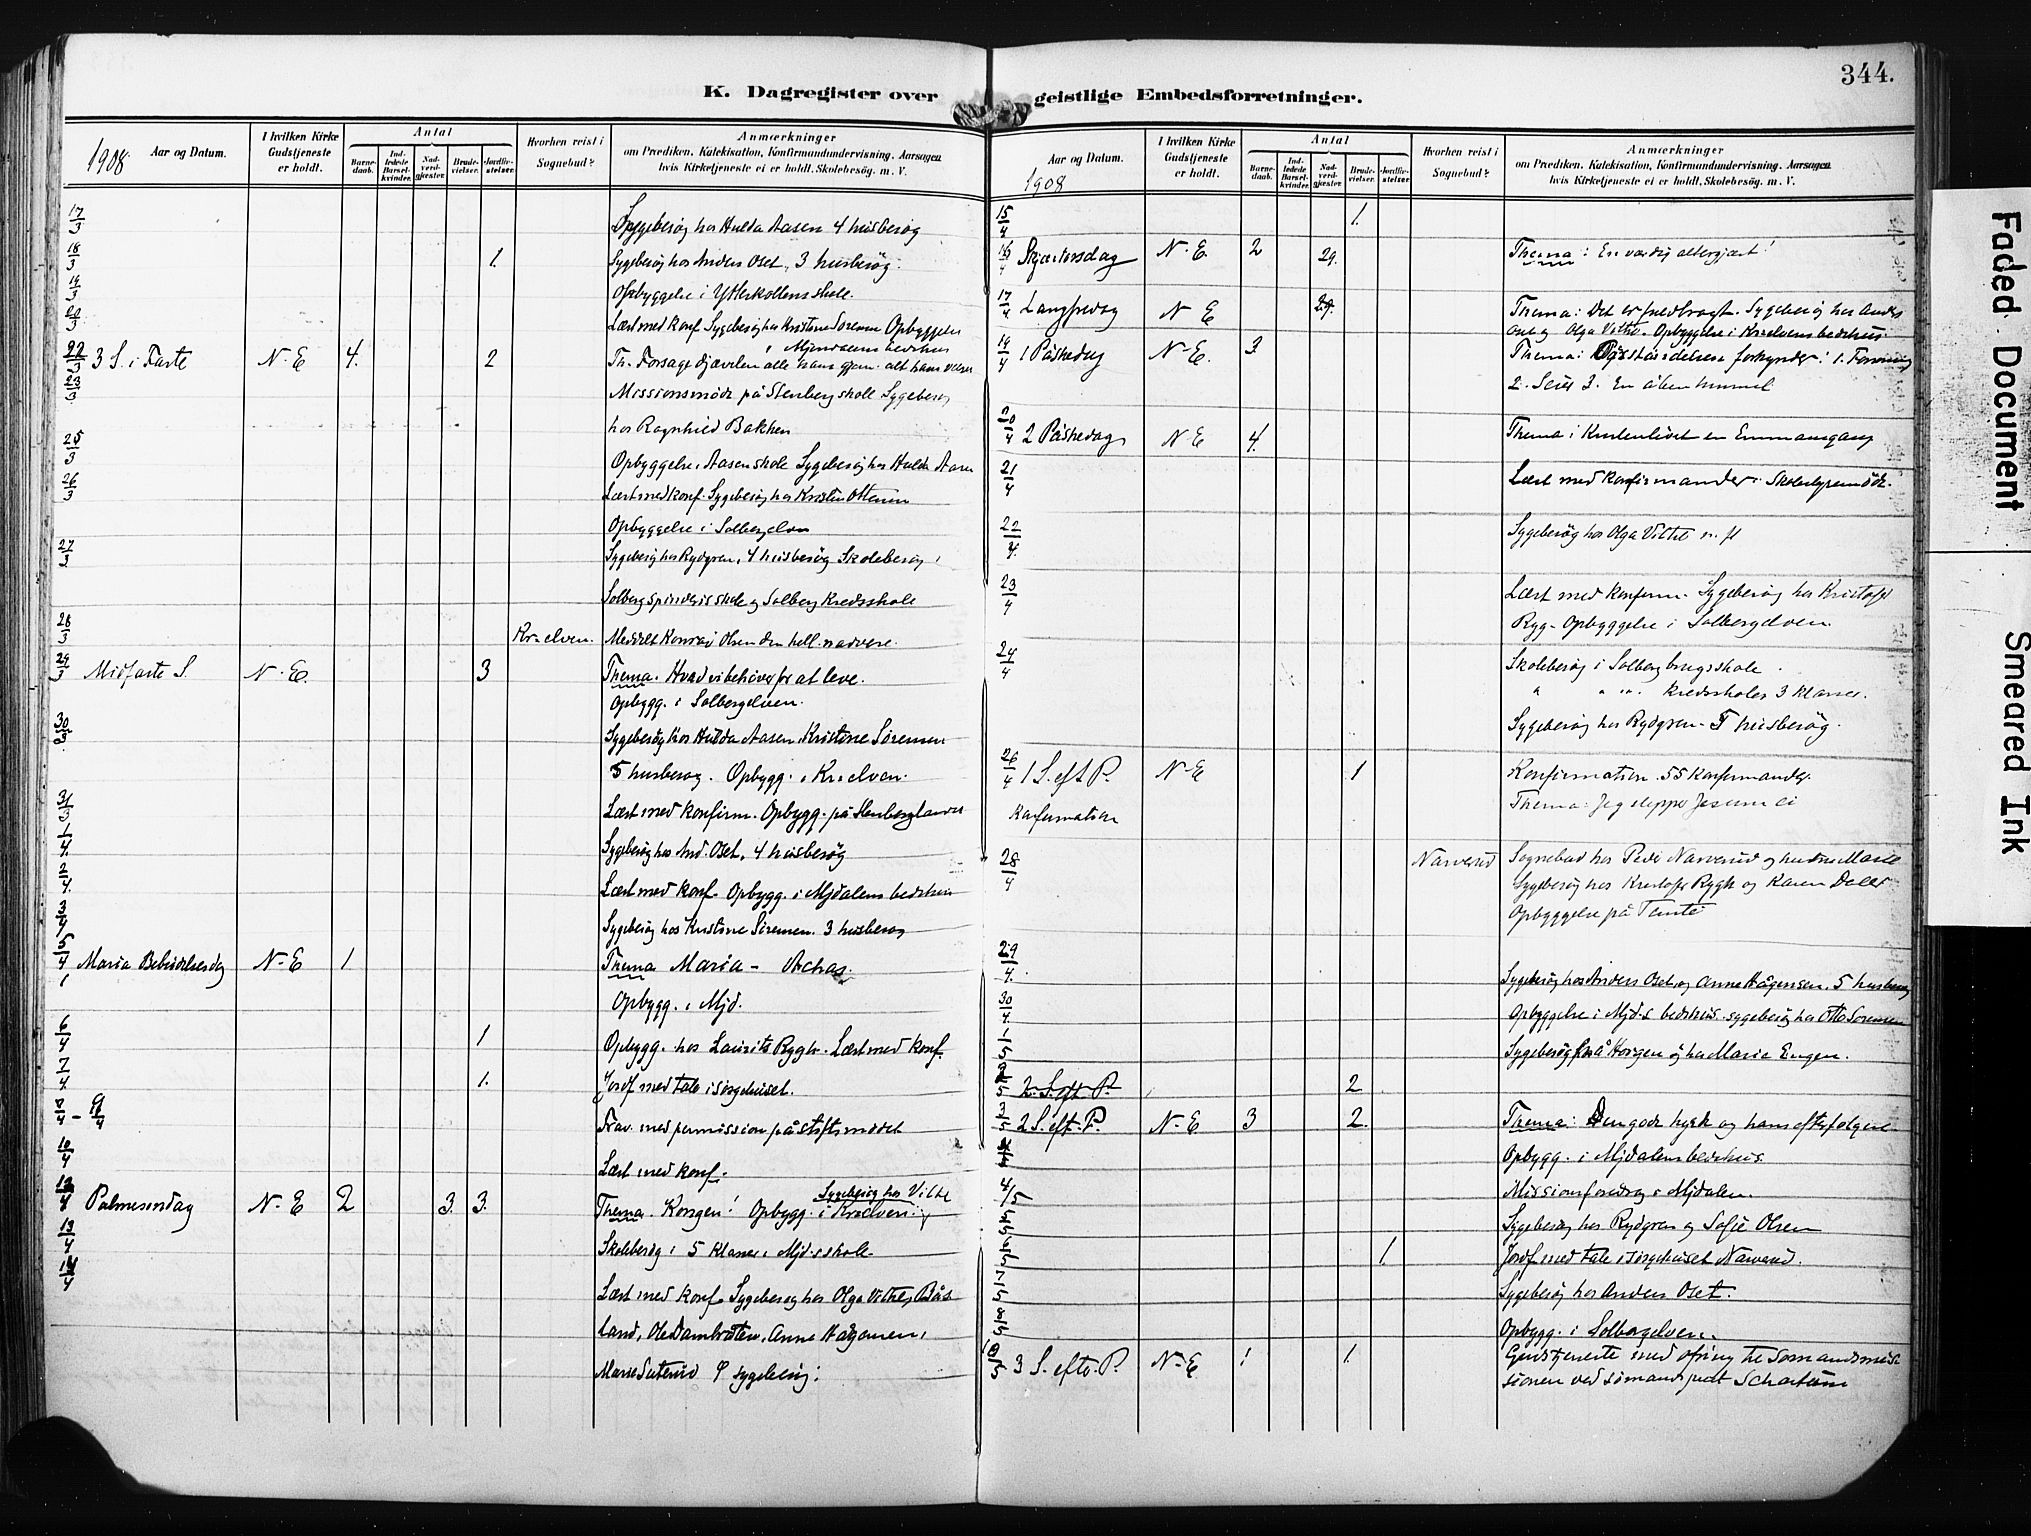 344.
K. Dagregister over geistlige Embedsforretninger.
1908. Aar og Datum.
I hvilken Kirke Gudstjeneste er holdt.
Antal
Barnedaab.
Indledede Barselkvinder.
Nadverdgjester
Brudevielser.
Jordfæstelser.
Hvorhen reist i Sognebud?
Anmærkninger
om Prædiken, Katekisation, Konfirmandundervisning, Aarsagen
hvis Kirketjeneste ei er holdt, Skolebesøg, m. V.
17/3 Sygebesøg hos Hulda Aasen 4 husbesøg
18/3 1. Sygebesøg hos Anders Oset, 3 husbesøg.
19/3 Opbyggelse i Ytterkollens skole.
20/3 Læst med konf Sygebesøg hos Kristine Sørensen Opbyggelse
i Mjøndalens bedehus
22/3 3 S. i Faste N-E 4. 2 Th. Forsage djævelen alle hans gjern. alt hans væsen
23/3 Missionsmøde på Stenberg skole Sygebesøg
hos Ragnhild Bakken
25/3 Opbyggelse i Aasen skole Sygebesøg hos Hulda Aasen
26/3 Læst med konf. Sygebesøg hos Kristin Ottesen
Opbyggelse i Solbergelven
27/3 Sygebesøg hos Rydgren, 4 husbesøg Skolebesøg i
Solberg spinderis skole og Solberg Kredsskole
28/3 Kr-elven. Meddelt Konrad Olsen den hell. nadvere.
29/3 Midfaste S. N-E. 3 Thema. Hvad vi behøver for at leve.
Opbygg. i Solbergelven.
30/3 Sygebesøg hos Hulda Aasen, Kristine Sørensen
5 husbesøg. Opbygg. i Kr-elven.
31/3 Læst med konfirm. Opbygg. på
1/4. Sygebesøg hos And. Oset, 4 husbesøg
2/4. Læst med konf- Opbygg. i Mjdalens bedehus
3/4 Sygebesøg hos Kristine Sørensen. 3 husbesøg
5/4 Maria Bebudelsesdag N-E 1 Thema Maria - Achas.
Opbygg. i Mjd.
6/4 1 Opbygg. hos Laurits Rygh. Læst med konf.
7/4. 1. Jordf med tale i sørgehuset.
8/4 - 9/4 Frav. med permission på stiftsmødet
10/4 Læst med konf.
12/4 Palmesøndag N-E 2 3. 3. Thema. Kongen! Opbygg. i Kr-elven. Sygebesøg hos Vilth
13/4 Skolebesøg i 5 klasser i Mjd.s skole
14/4 Læst med konf. Sygebesøg hos Olga Vilthe, Bås
land, Ole Dambråten, Anne Hågensen,
Marie Sæterud
1908
Aar og Datum.
I hvilken Kirke Gudstjeneste er holdt.
Antal
Barnedaab.
Indledede Barselkvinder.
Nadverdgjester
Brudevielser.
Jordfæstelser.
Hvorhen reist i Sognebud?
Anmærkninger
om Prædiken, Katekisation, Konfirmandundervisning, Aarsagen
hvis Kirketjeneste ei er holdt, Skolebesøg, m. V.
15/4 1.
16/4 Skjærtorsdag N-E. 2 29. Thema: En værdig altergjæst!
17/4 Langfredag N-E 29. Thema: Det er fuldbragt. Sygebesøg hos Anders
Oset og Olga Vilthe. Opbyggelse i Krelvens bedehus
19/4 1 Påskedag N-E. 3 Thema: Opstandelsen forkynder: 1. Forsoning
2. Seier 3. En åben himmel
20/4 2 Påskedag N-E 4. Thema: Kristenlivet en Emmausgang
21/4 Læst med konfirmander. Skolestyremøde.
22/4. Sygebesøg hos Olga Vilthe m. fl
23/4 Læst med konfirm. Sygebesøg hos Kristofer
Ryg- Opbyggelse i Solbergelven.
24/4 Skolebesøg i Solberg brugsskole.
" " " kredsskoles 3 klasser.
Sygebesøg hos Rydgren- 5 husbesøg.
26/4 1 S. eft P. N-E 1 Konfirmation. 55 konfirmander.
Konfirmation Thema: Jeg slipper Jesum ei
28/4 Narverud Sognebud hos Peder Narverud og hustru Marie
Sygebesøg hos Kristofer Rygh og Karen
Opbyggelse på Tente
29/4. Sygebesøg hos Anders Oset, og Anne Hågensen. 5 husbesøg
30/4 Opbyggelse i Mjd.s bedehus. sygebesøg hos Otto Sørensen
1/5 Sygebesøg på Horgen og hos Maria Engen.
2/5 2. S. eft. P. 2
3/5 2 S. eft. P. N-E 3 2. Thema: Den gode hyrde og hans efterfølgere
Opbygg. i Mjdalens bedehus.
4/5 Missionsforedrag i Mjdalen.
5/5 Sygebesøg hos Rydgren og Sofie Olsen
6/5 1 Jordf. med tale i sørgehuset Narverud.
7/5 Sygebesøg hos Anders Oset.
8/5 Opbygg. i Solbergelven.
10/5 3 S. efter P. N-E 1 1. Gudstjeneste med ofring til Sømandsmis
sionen ved sømandspræst Schartum
Faded Document
Smeared Ink